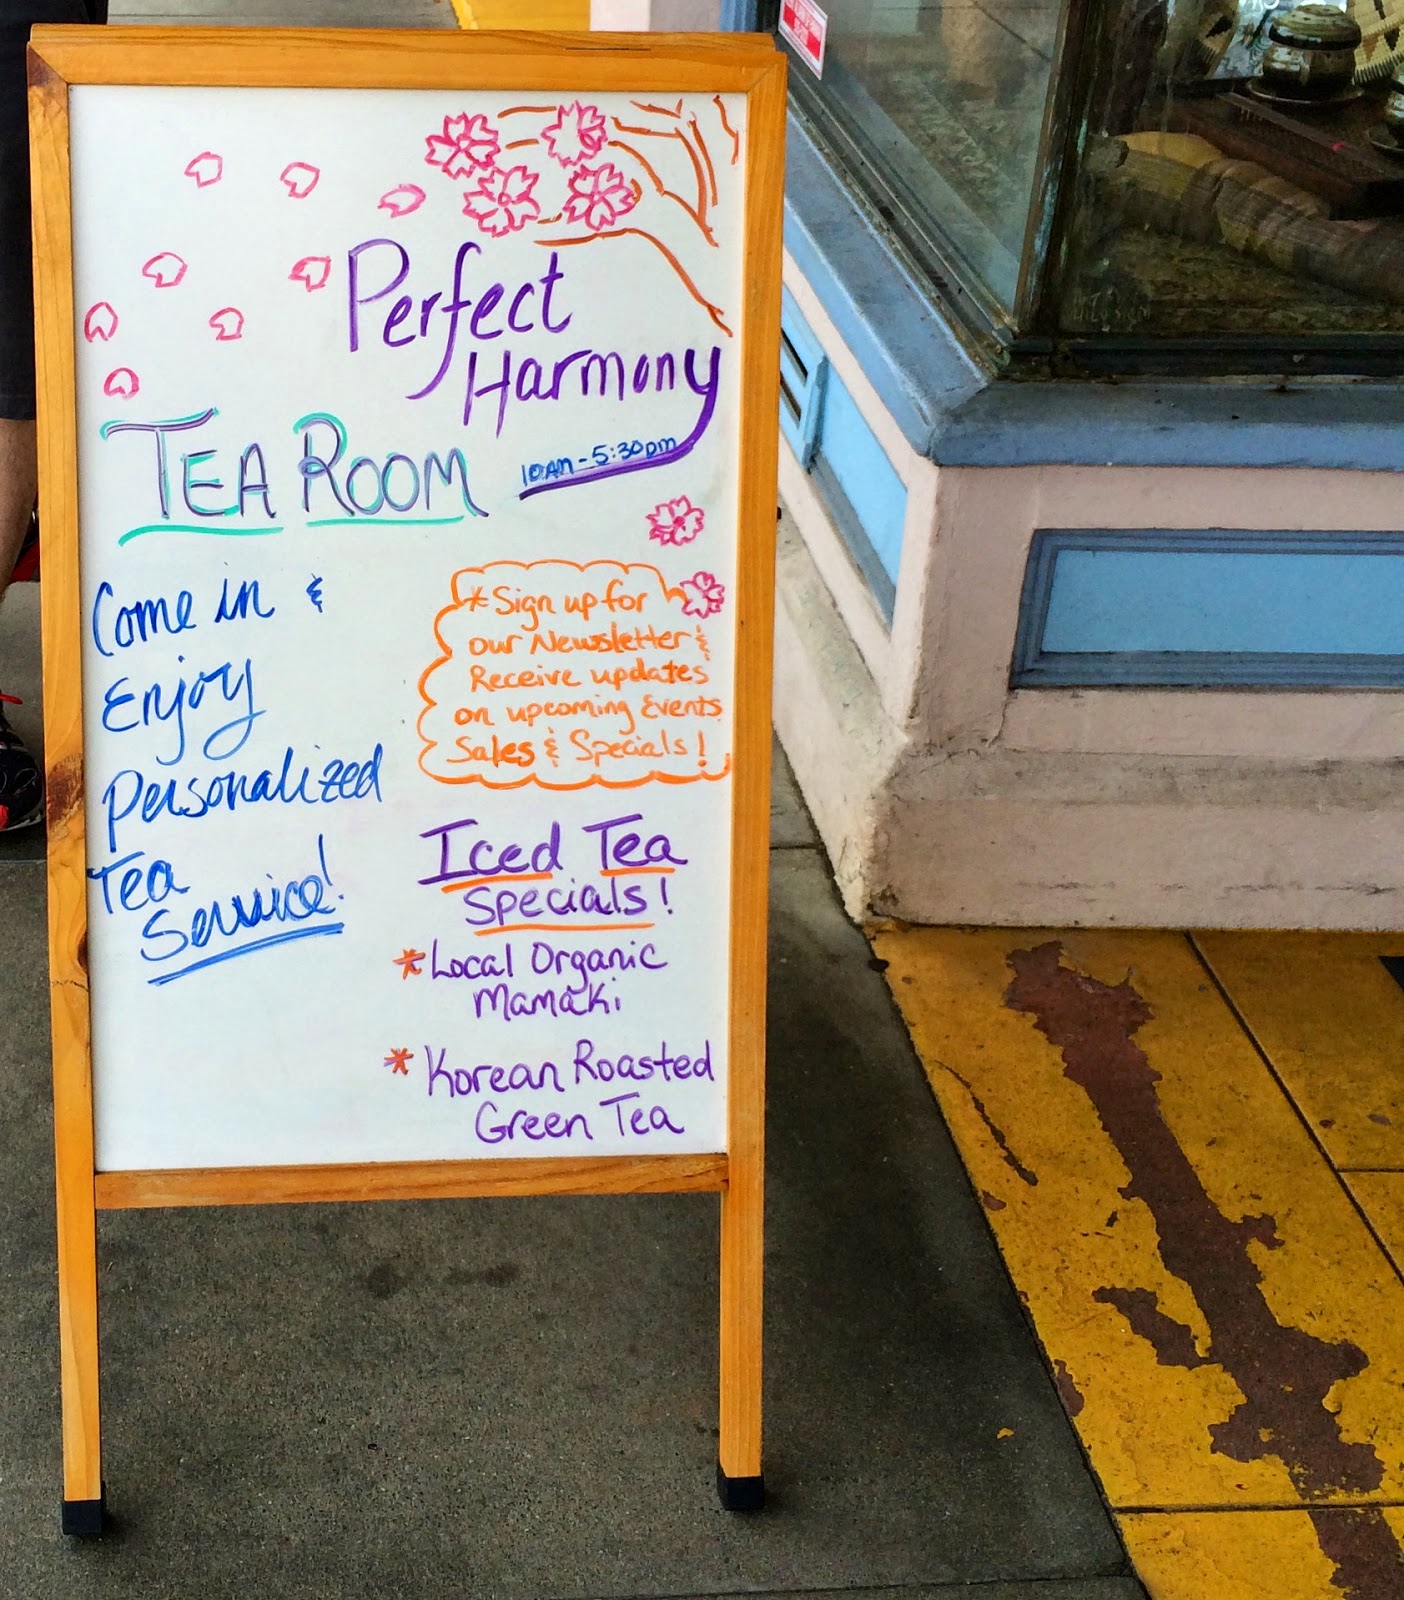 Perfect
Harmony
TEA ROOM
10AM - 5:30pm
Come in &
Enjoy
Personalized
Tea
Service!
* Sign up for
our Newsletter &
Receive updates
on upcoming Events
Sales & Specials!
Iced Tea
Specials!
* Local Organic
Mamaki
* Korean Roasted
Green Tea